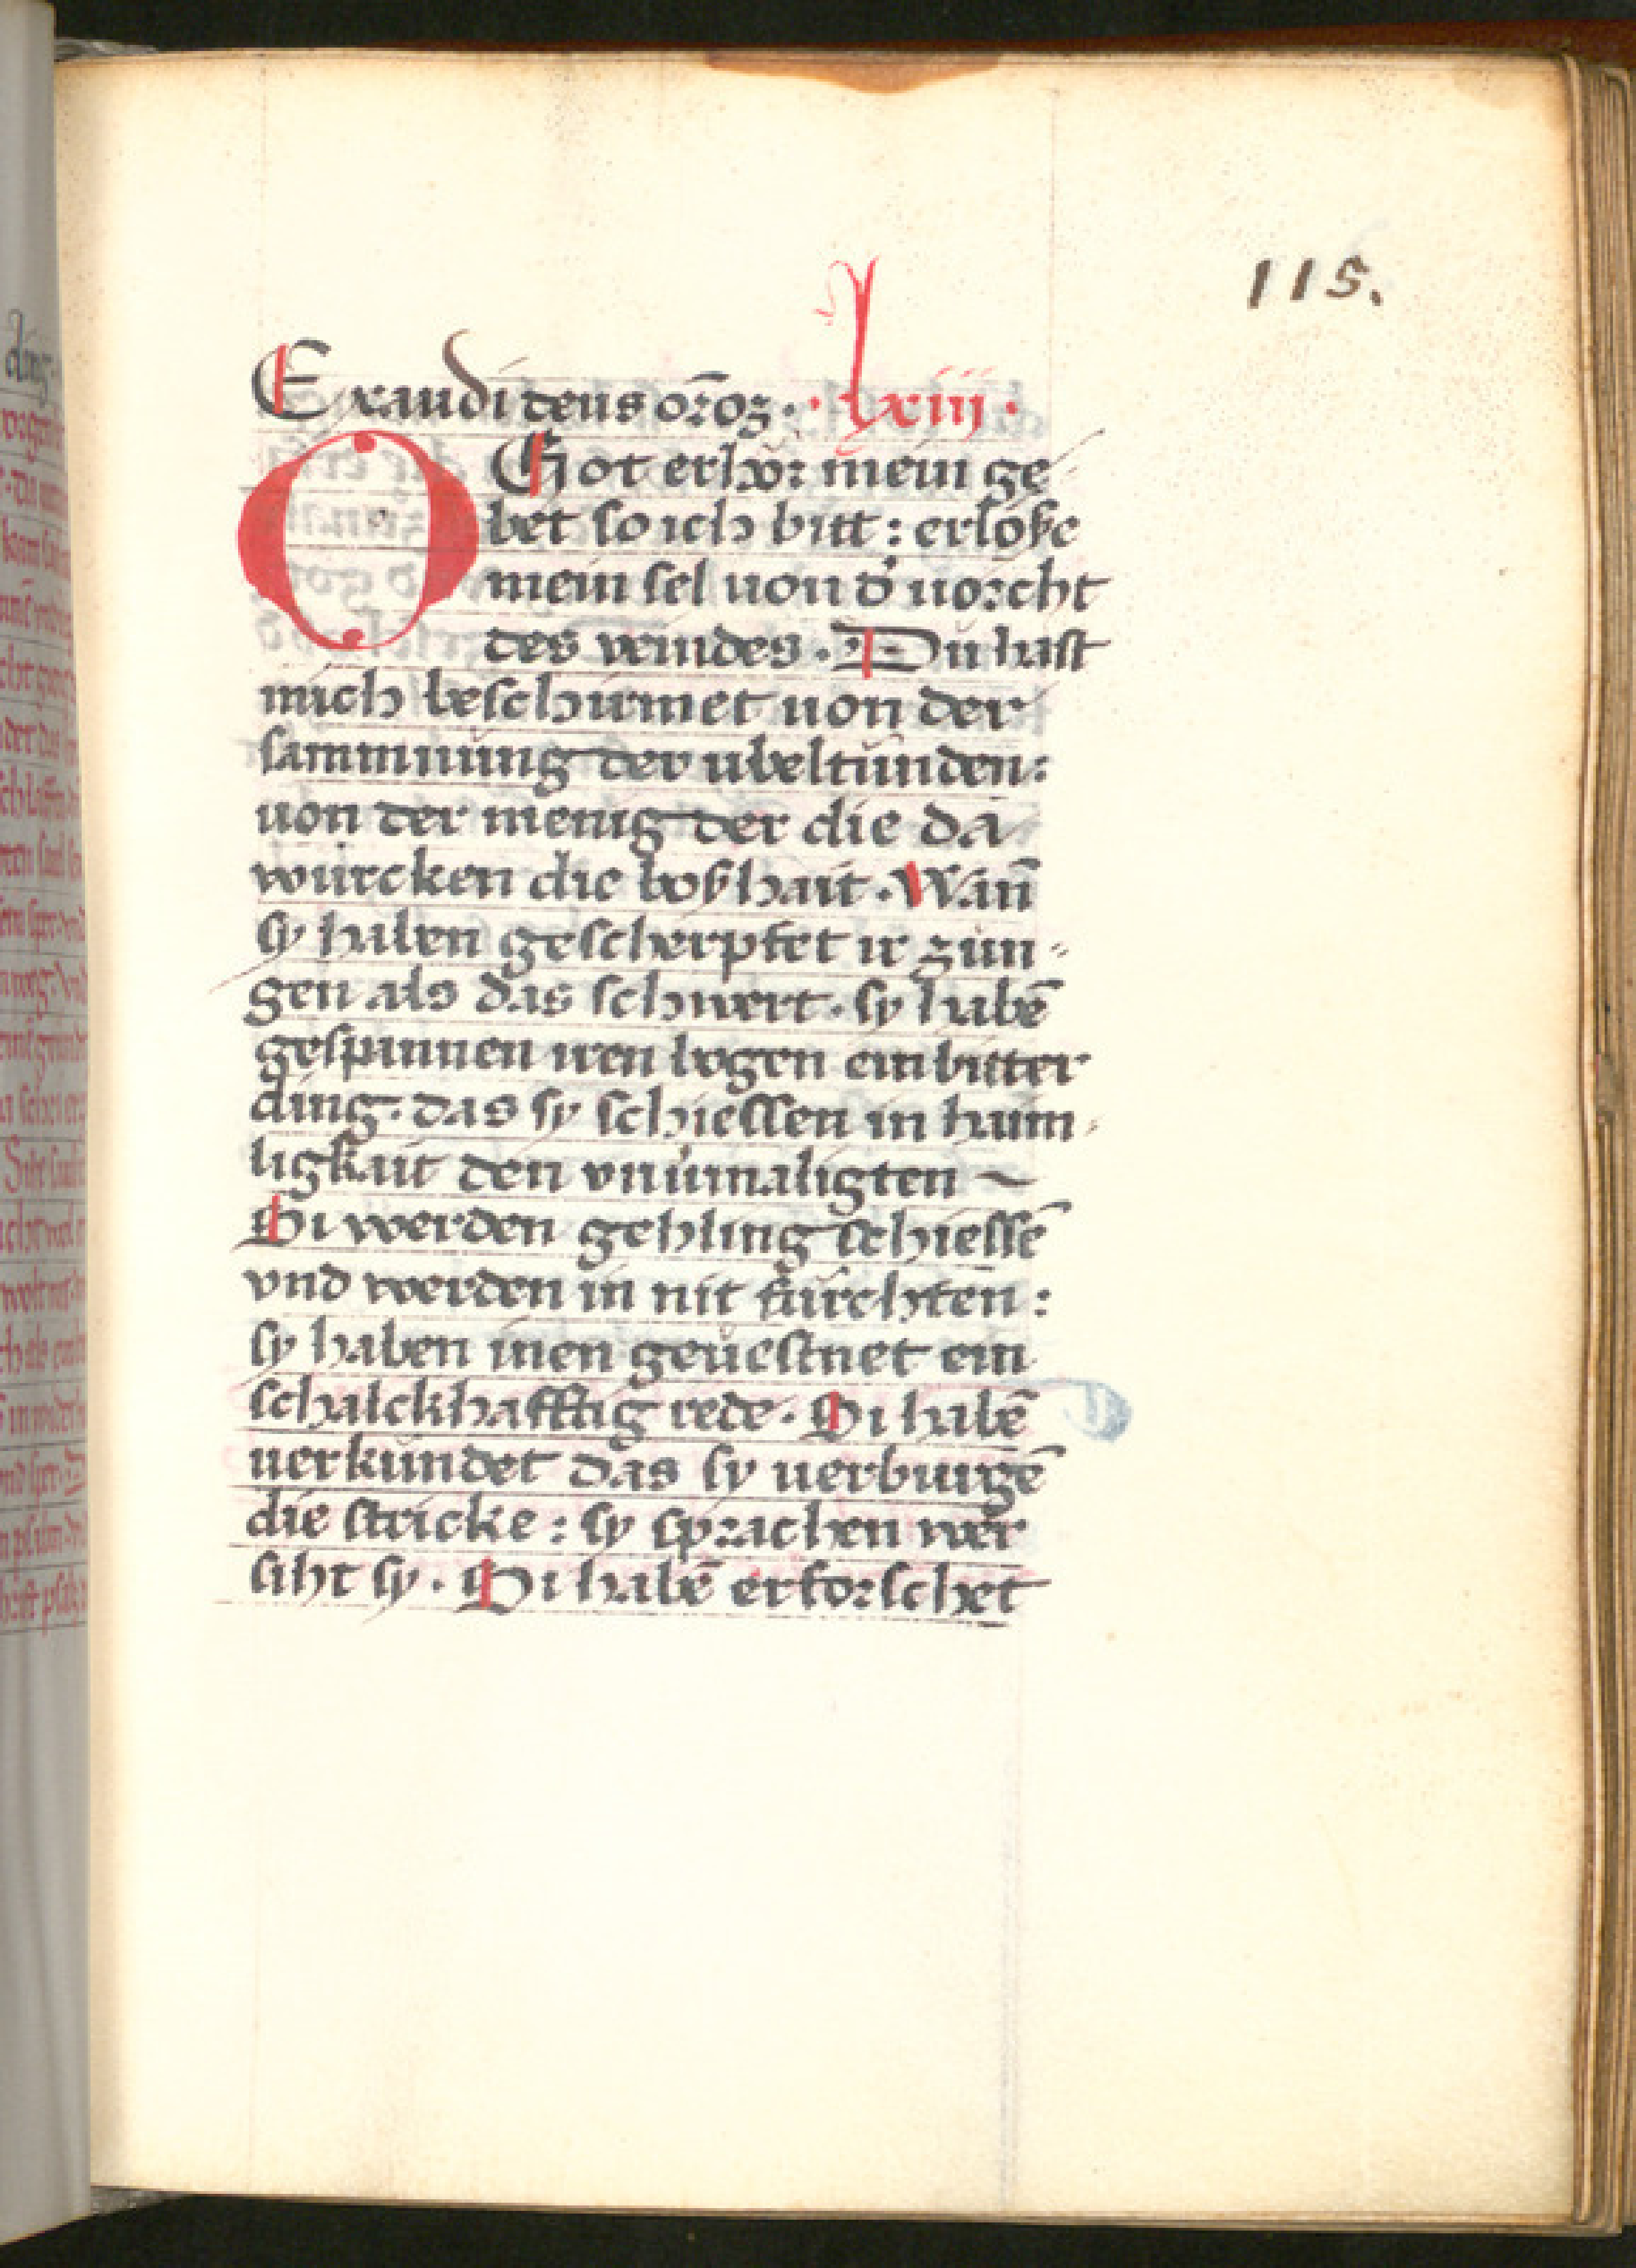 115.
Exaudi deus or̄oꝫ · · lxiii ·
O Got erhör mein ge-
bet so ich bitt : erlöse
mein sel uon d̾ uorcht
des veindes . Du hast
mich beschirmet uon der
sammnung der ubeltunden :
uon der menig der die da
würcken die boßhait . Wan̄
sy haben gescherpfet ir zun-
gen als das schwert . sy habē
gespannen iren bogen ein bitter
ding . das sy schiessen in haim-
ligkait den vnumaligten ~
Si werden gehling schiessē
vnd werden in nit fürchten :
sy haben inen geuestnet ein
schalckhafftig rede . Si habē
uerkündet das sy uerburgē
die stricke : sy sprachen wer
siht sy . Si habē erforschet